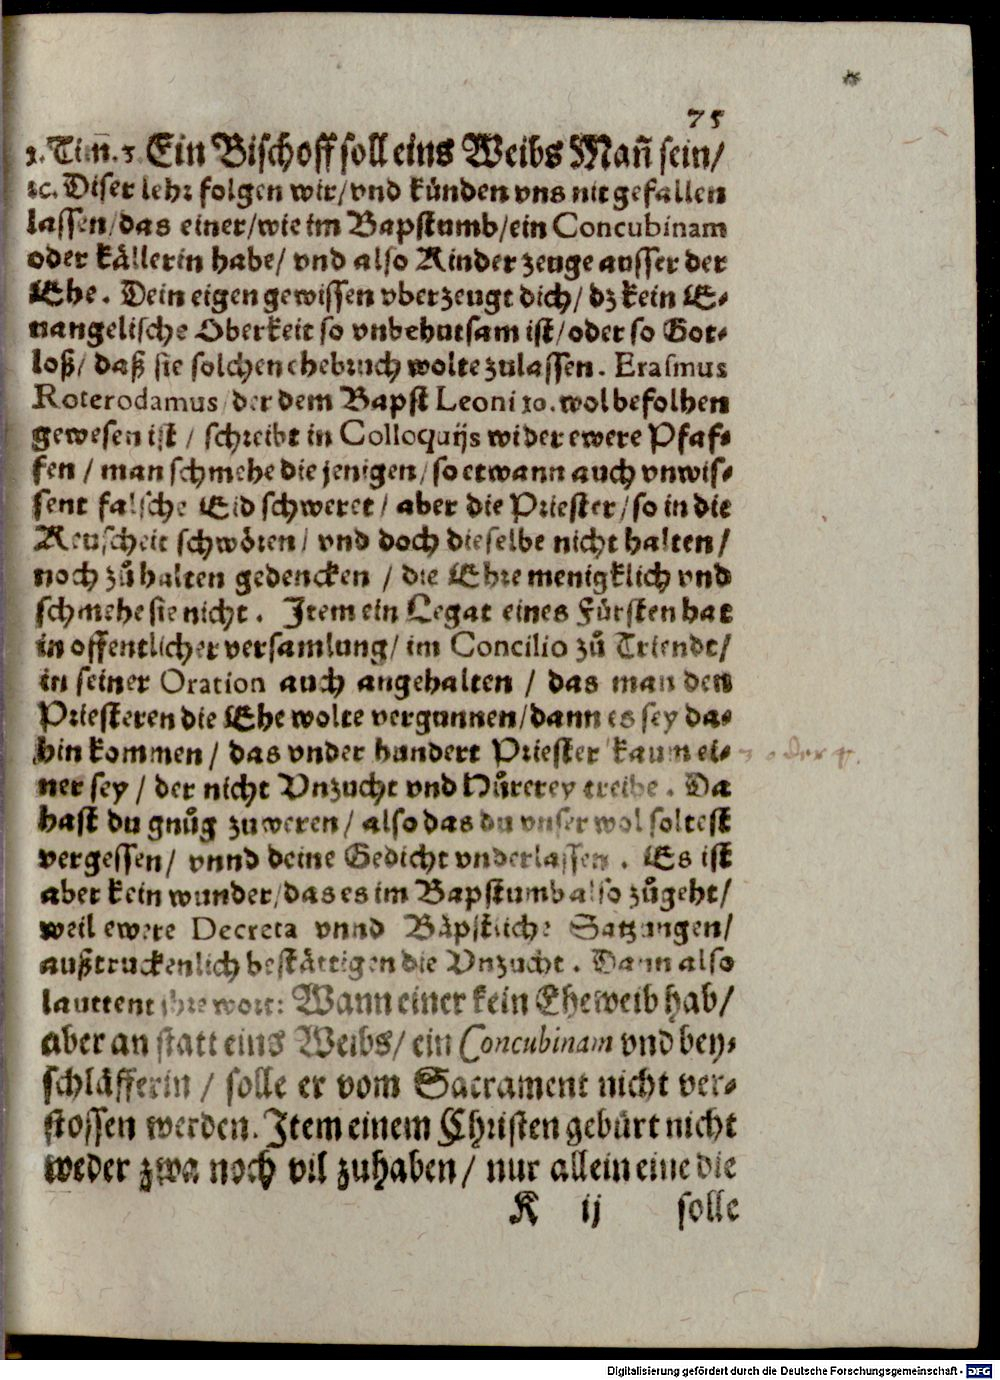 75
1. Tim. 3. Ein Bischoff soll eins Weibs Mañ sein/
ꝛc. Diser lehr folgen wir/ vnd künden vns nit gefallen
lassen/ das einer/ wie im Bapstumb/ ein Concubinam
oder källerin habe/ vnd also Kinder zeuge ausser der
Ehe. Dein eigen gewissen vberzeugt dich/ dz kein E-
uangelische Oberkeit so vnbehutsam ist/ oder so Got-
loß/ daß sie solchen ehebruch wolte zulassen. Erasmus
Roterodamus/ der dem Bapst Leoni 10. wol befolhen
gewesen ist / schreibt in Colloquijs wider ewere Pfaf-
fen / man schmehe die jenigen/ so etwann auch vnwis-
sent falsche Eid schweret/ aber die Priester/ so in die
Keuscheit schwören/ vnd doch dieselbe nicht halten/
noch zů halten gedencken / die Ehre menigklich vnd
schmehe sie nicht. Item ein Legat eines Fürsten hat
in offentlicher versamlung/ im Concilio zů Triendt/
in seiner Oration auch angehalten / das man den
Priesteren die Ehe wolte vergunnen/ dann es sey da-
hin kommen / das vnder hundert Priester kaum ei-
ner sey / der nicht Vnzucht vnd Hůrerey treibe. Da
hast du gnůg zuweren/ also das du vnser wol soltest
vergessen/ vnnd deine Gedicht vnderlassen. Es ist
aber kein wunder/ das es im Bapstumb also zůgeht/
weil ewere Decreta vnnd Bäpstliche Satzungen/
außtruckenlich bestättigen die Vnzucht. Dann also
lauttent ihre wort: Wann einer kein Eheweib hab/
aber an statt eins Weibs/ ein Concubinam vnd bey-
schläfferin / solle er vom Sacrament nicht ver-
stossen werden. Item einem Christen gebürt nicht
weder zwa noch vil zuhaben/ nur allein eine die
K ij solle
Digitalisierung gefördert durch die Deutsche Forschungsgemeinschaft - DFG